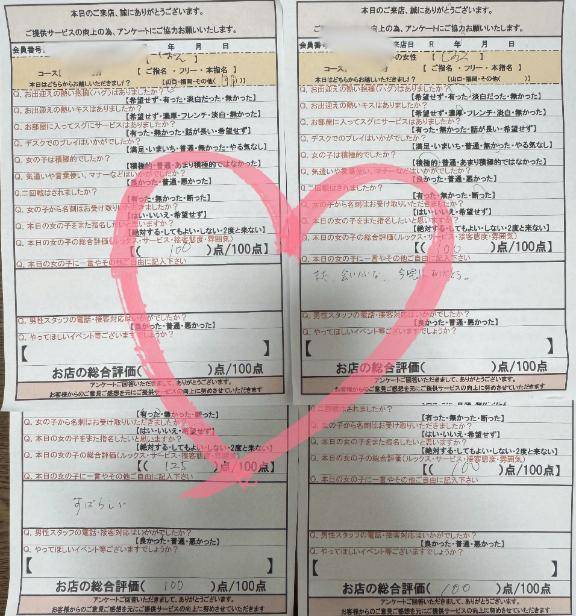 本日のご来店、誠にありがとうございます。
ご提供サービスの向上の為、アンケートにご協力お願いいたします。
会員番号: 年 月 日
コース【 【 ご指名・フリー・本指名】
本日はどちらからお越しいただきましたか? 【山口・福岡・その他( )】
Q. お出迎えの熱い抱擁(ハグ)はありましたか?
【希望せず・有った・淡白だった・無かった】
Q. お出迎えの熱いキスはありましたか?
【希望せず・濃厚・フレンチ・淡白・無かった】
Q. お部屋に入ってスグにサービスはありましたか?
【有った・無かった・話が長い・希望せず】
Q. デスクでのプレイはいかがでしたか?
【満足・いまいち・普通・無かった・やる気なし】
Q. 女の子は積極的でしたか?
【積極的・普通・あまり積極的ではなかった】
Q. 気遣いや言葉使い、マナーなどはいかがでしたか?
【良かった・普通・悪かった】
Q. 二回戦はされましたか?
【有った・無かった・断った】
Q. 女の子から名刺はお受け取りいただきましたか?
【はい・いいえ・希望せず】
Q. 本日の女の子をまた指名したいと思いますか?
【絶対する・してもよい・しない・2度と来ない】
Q. 本日の女の子の総合評価(ルックス・サービス・接客態度・雰囲気)
【( 100 )点/100点】
Q. 本日の女の子に一言やその他ご自由に記入下さい
Q. 男性スタッフの電話・接客対応はいかがでしたか?
【良かった・普通・悪かった】
Q. やってほしいイベント等ございますでしょうか?
【 】
お店の総合評価( )点/100点
アンケートに回答いただきまして、ありがとうございます。
お客様からのご意見ご感想を元にご提供サービスの向上に努めさせていただきます
本日のご来店、誠にありがとうございます。
ご提供サービスの向上の為、アンケートにご協力お願いいたします。
来店日 R 年 月 日
の女性【 】
コース【 【 ご指名・フリー・本指名】
本日はどちらからお越しいただきましたか? 【山口・福岡・その他( )】
Q. お出迎えの熱い抱擁(ハグ)はありましたか?
【希望せず・有った・淡白だった・無かった】
Q. お出迎えの熱いキスはありましたか?
【希望せず・濃厚・フレンチ・淡白・無かった】
Q. お部屋に入ってスグにサービスはありましたか?
【有った・無かった・話が長い・希望せず】
Q. デスクでのプレイはいかがでしたか?
【満足・いまいち・普通・無かった・やる気なし】
Q. 女の子は積極的でしたか?
【積極的・普通・あまり積極的ではなかった】
Q. 気遣いや言葉使い、マナーなどはいかがでしたか?
【良かった・普通・悪かった】
Q. 二回戦はされましたか?
【有った・無かった・断った】
Q. 女の子から名刺はお受け取りいただきましたか?
【はい・いいえ・希望せず】
Q. 本日の女の子をまた指名したいと思いますか?
【絶対する・してもよい・しない・2度と来ない】
Q. 本日の女の子の総合評価(ルックス・サービス・接客態度・雰囲気)
【( 100 )点/100点】
Q. 本日の女の子に一言やその他ご自由に記入下さい
Q. 男性スタッフの電話・接客対応はいかがでしたか?
【良かった・普通・悪かった】
Q. やってほしいイベント等ございますでしょうか?
【 】
お店の総合評価( )点/100点
アンケートに回答いただきまして、ありがとうございます。
お客様からのご意見ご感想を元にご提供サービスの向上に努めさせていただきます
【有った・無かった・断った】
Q. 女の子から名刺はお受け取りいただきましたか?
【はい・いいえ・希望せず】
Q. 本日の女の子をまた指名したいと思いますか?
【絶対する・してもよい・しない・2度と来ない】
Q. 本日の女の子の総合評価(ルックス・サービス・接客態度・雰囲気)
【( 125 )点/100点】
Q. 本日の女の子に一言やその他ご自由に記入下さい
すばらしい
Q. 男性スタッフの電話・接客対応はいかがでしたか?
【良かった・普通・悪かった】
Q. やってほしいイベント等ございますでしょうか?
【 】
お店の総合評価( 100 )点/100点
アンケートご回答いただきまして、ありがとうございます。
お客様からのご意見ご感想を元にご提供サービスの向上に努めさせていただきます
二回戦はされましたか?
【有った・無かった・断った】
Q. 女の子から名刺はお受け取りいただきましたか?
【はい・いいえ・希望せず】
Q. 本日の女の子をまた指名したいと思いますか?
【絶対する・してもよい・しない・2度と来ない】
Q. 本日の女の子の総合評価(ルックス・サービス・接客態度・雰囲気)
【( 100 )点/100点】
Q. 本日の女の子に一言やその他ご自由に記入下さい
Q. 男性スタッフの電話・接客対応はいかがでしたか?
【良かった・普通・悪かった】
Q. やってほしいイベント等ございますでしょうか?
【 】
お店の総合評価( 100 )点/100点
アンケートご回答いただきまして、ありがとうございます。
お客様からのご意見ご感想を元にご提供サービスの向上に努めさせていただきます